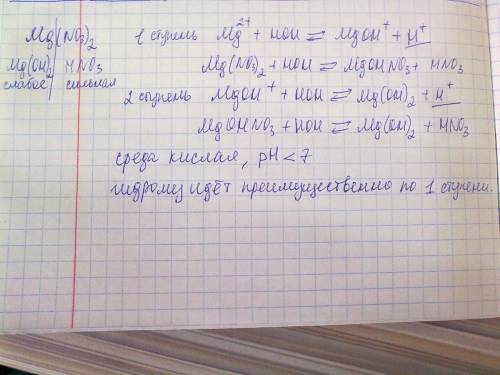 Mg(NO₃)₂
Mg(OH)₂ | HNO₃
слабое | сильная
1 ступень Mg²⁺ + HOH ⇌ MgOH⁺ + H⁺
Mg(NO₃)₂ + HOH ⇌ MgOHNO₃ + HNO₃
2 ступень MgOH⁺ + HOH ⇌ Mg(OH)₂ + H⁺
MgOHNO₃ + HOH ⇌ Mg(OH)₂ + HNO₃
среда кислая, pH < 7
гидролиз идёт преимущественно по 1 ступени.